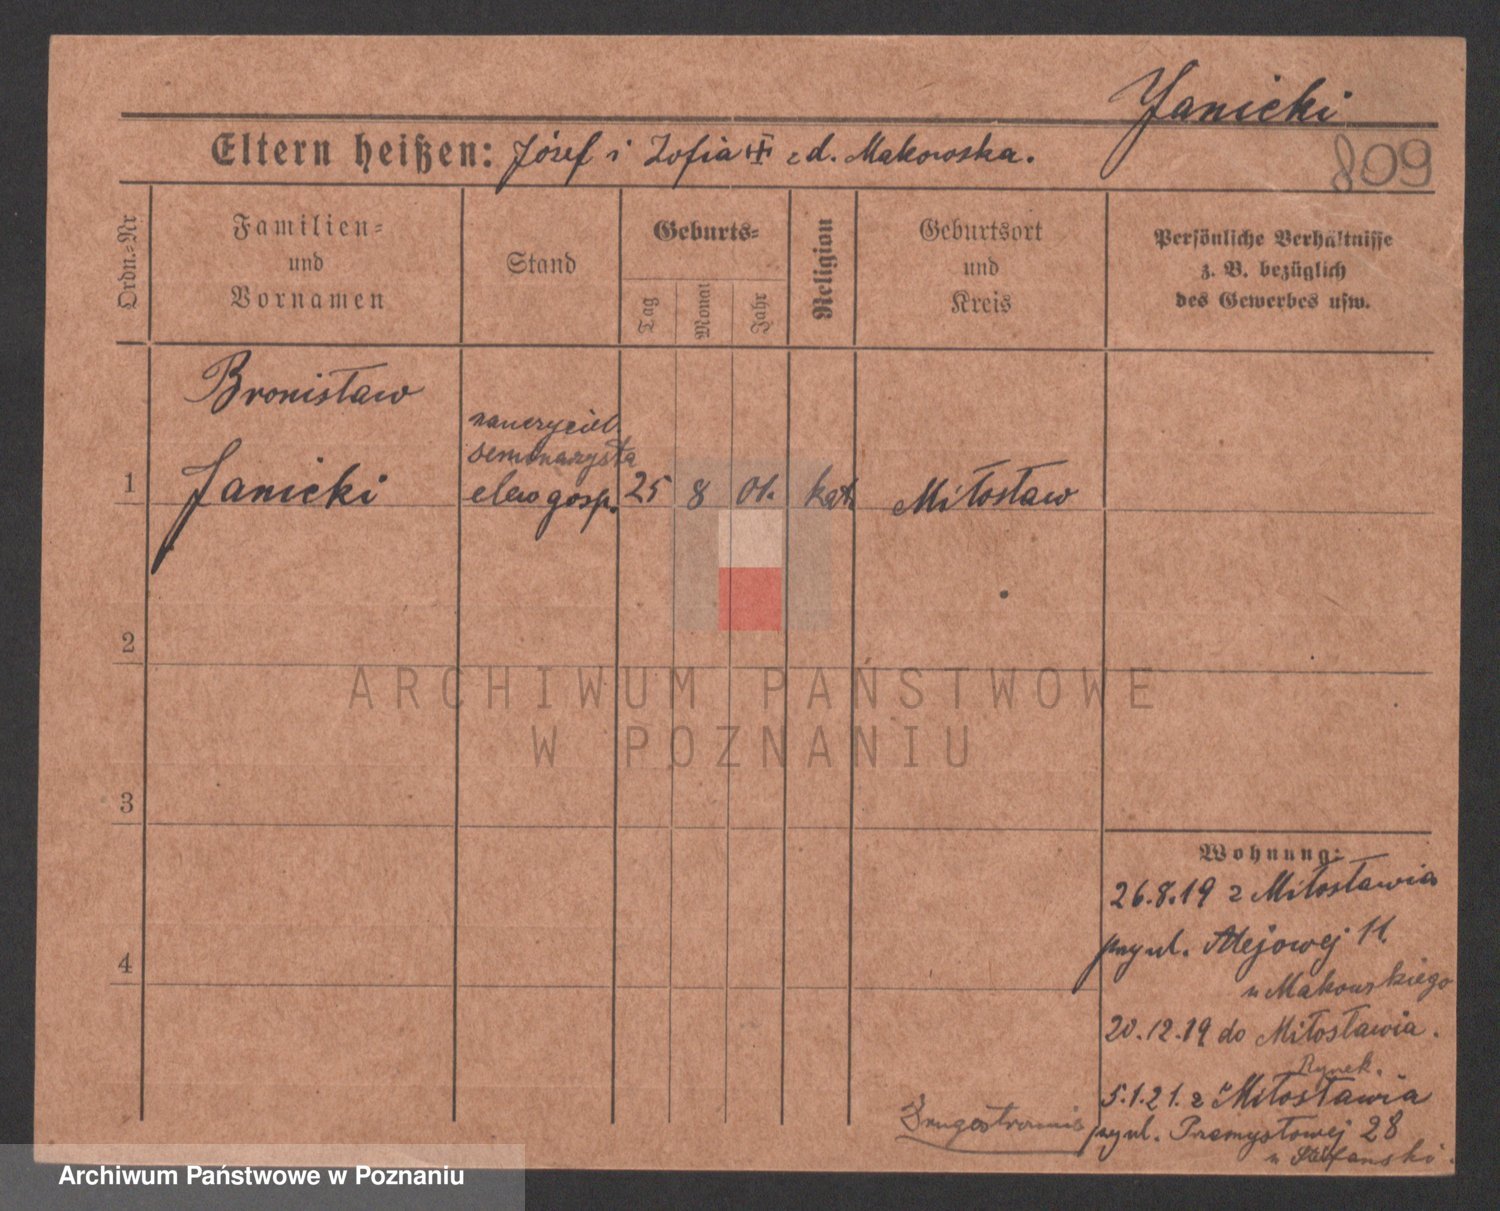 Janicki
809
Eltern heißen: Józef i Zofia z d. Makowska.
Ordn.=Nr
Familien=
und
Vornamen
Stand
Geburts=
Tag
Monat
Jahr
Religion
Geburtsort
und
Kreis
Persönliche Verhältnisse
z. B. bezüglich
des Gewerbes usw.
Bronisław
nauczyciel
seminarzysta
1 Janicki elew gosp. 25 8 01. kat. Miłosław
2
ARCHIWUM PAŃSTWOWE
W POZNANIU
3
Wohnung:
26.8.19 z Miłosławia
przy ul. Alejowej 11.
4
u Makowskiego
20.12.19 do Miłosławia.
Rynek.
5.1.21. z Miłosławia
przy ul. Przemysłowej 28
u Stefanski.
Archiwum Państwowe w Poznaniu